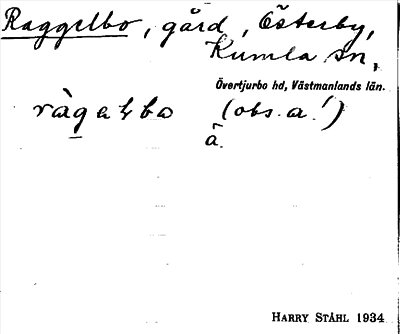 Raggelbo, gård, Österby,
Kumla sn,
Övertjurbo hd, Västmanlands län.
(obs. a!)
HARRY STÅHL 1934